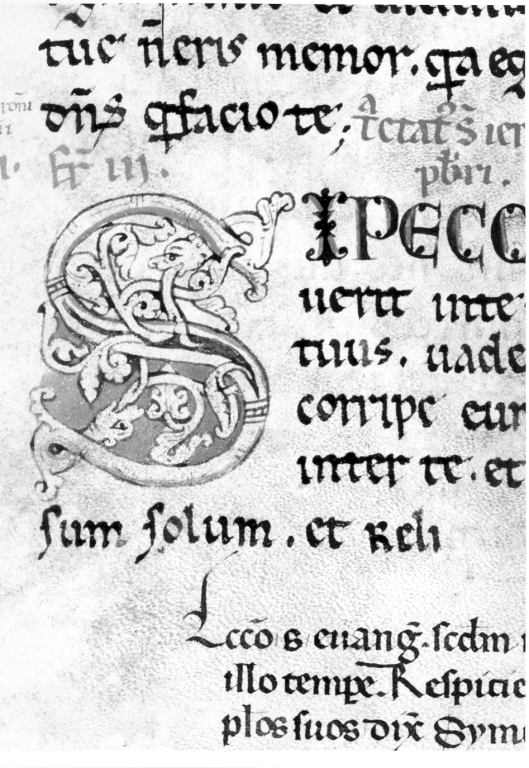 tūc n̄eris memor. q̄a eg
dn̄s q̄facio te;
f̄r iii. pbr̄i.
SIPECC
uerit inte
tuus. uade
corripe eum
inter te. et
sum solum. et Reli
Lcc̄o s̄ euanḡ. scd̄m
illo tempe. Respicie
plos suos dix̄ Symo